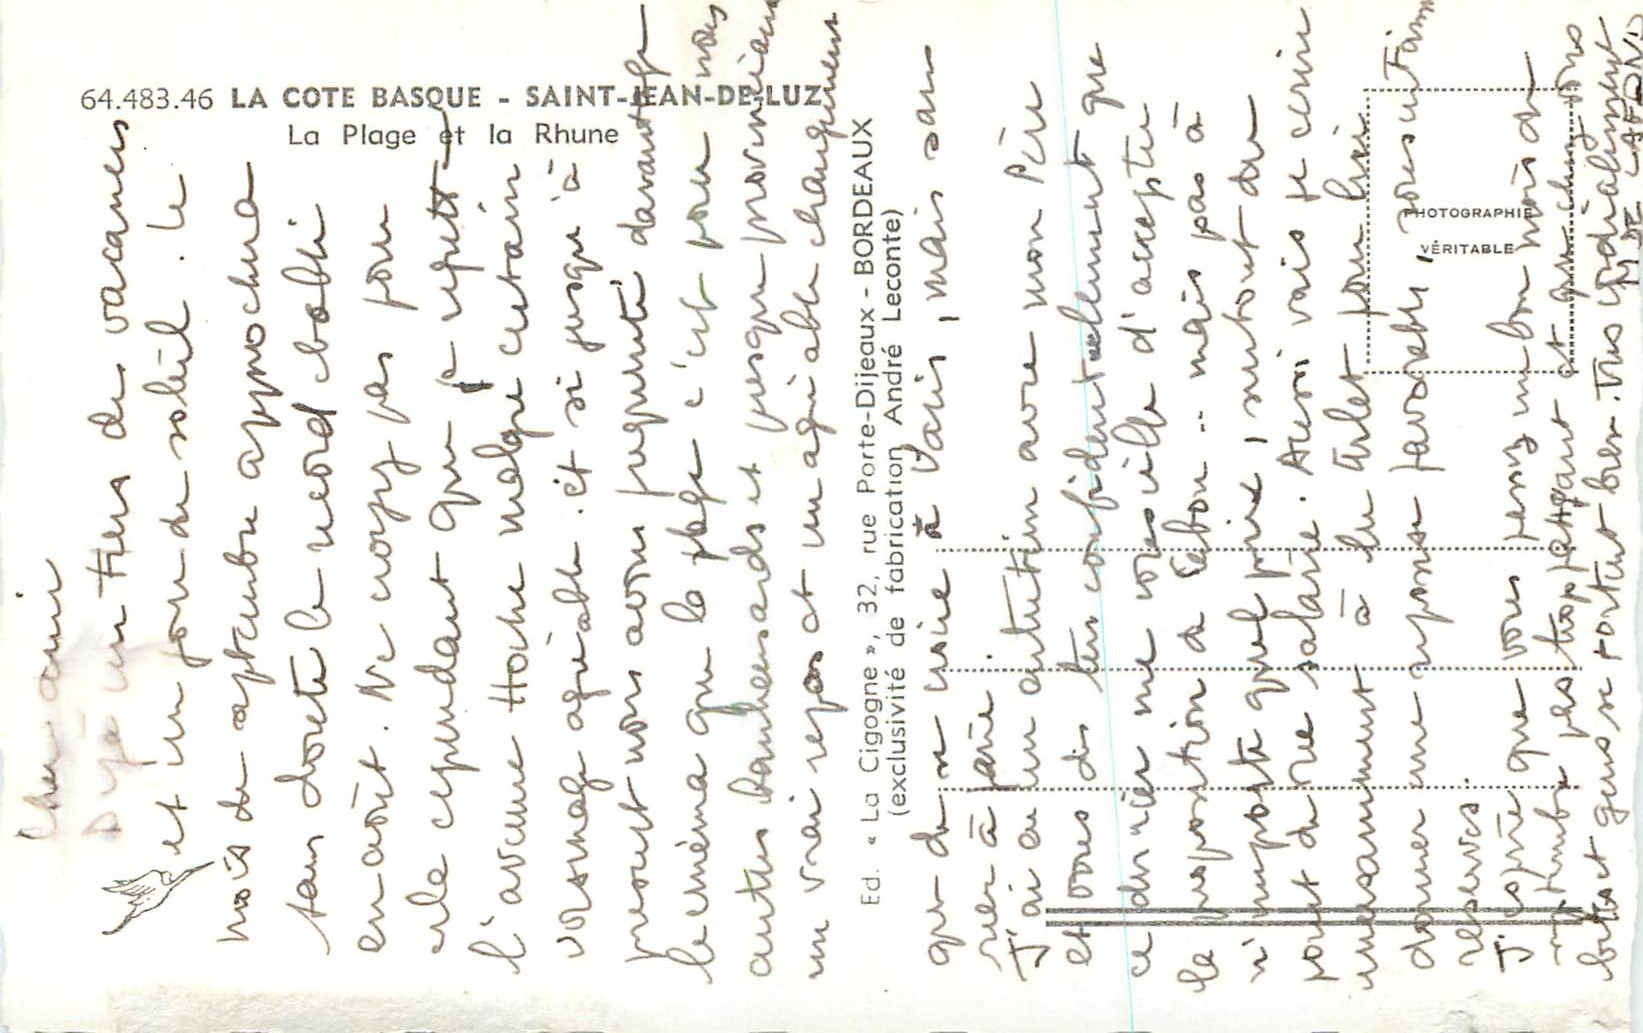 64.483.46 LA COTE BASQUE - SAINT-JEAN-DE-LUZ
La Plage et la Rhune
Ed. « La Cigogne », 32, rue Porte-Dijeaux - BORDEAUX
(exclusivité de fabrication André Leconte)
PHOTOGRAPHIE
VÉRITABLE
Cher ami
Déjà un tiers de vacances
et un jour de soleil. Le
mois de septembre approchera
sans doute le record établi
en août. Ne croyez pas pour
cela cependant que je regrette
l'avenue Hoche malgré certain
voisinage agréable. Et si jusqu'à
présent nous avons fréquenté davantage
le cinéma que la plage c'est pour nous
autres banlieusards et presque provinciaux
un vrai repos et un agréable changement
que de se croire à Paris, mais sans
rien à faire.
J'ai eu un entretien avec mon Père
et vous dis très confidentiellement que
ce dernier me conseille d'accepter
la proposition de - mais pas à
n'importe quel prix, surtout du
point de vue salaire. Aussi vais je écrire
incessamment à pour lui
donner une réponse favorable, sous certaines
réserves.
J'espère que vous passez un bon mois de
septembre pas trop fatigant et que chez vous
tout gens se portent bien. Très cordialement